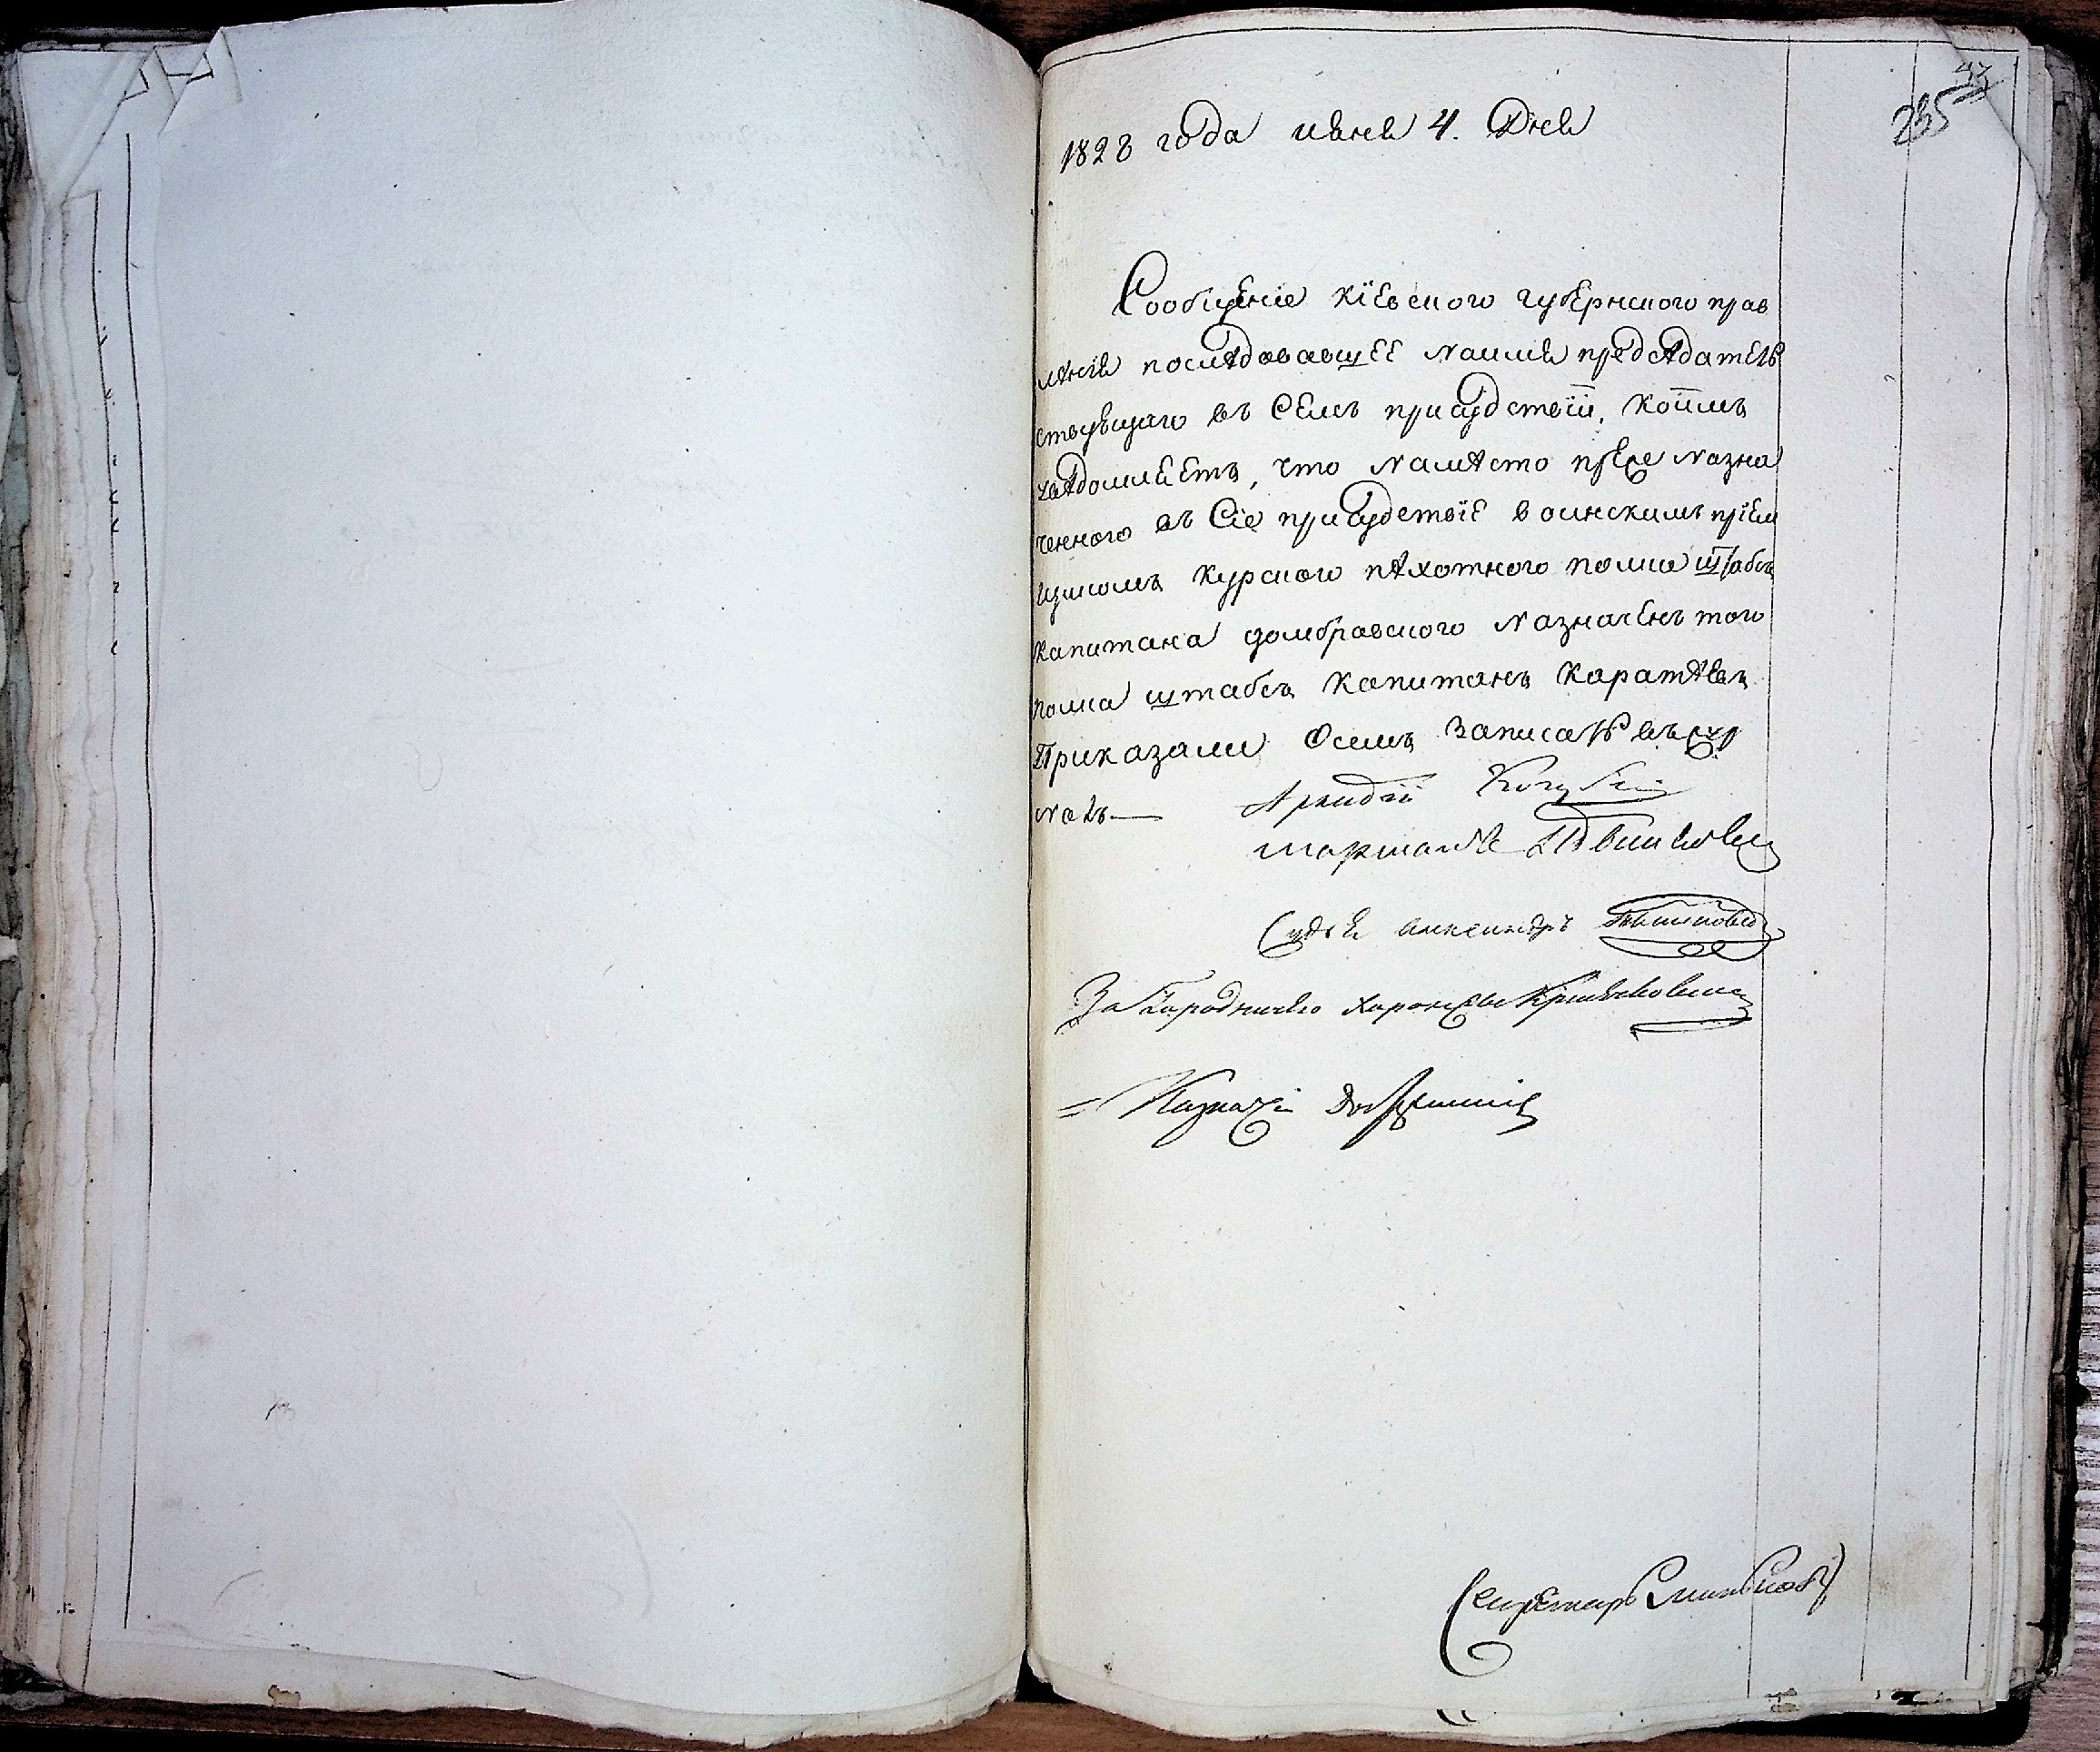 235
1828 года июня 4. Дня
Сообщеніе кіевского губернского прав
ленія последовавшее наимя председатель
ствующаго въ Семъ присудствіи, коимъ
уведомляетъ, что наместо преже назна
ченного въ Сіе присудствіе воинскимъ пріем
щикомъ курского пехотного полка штабсъ
капитана домбровского назначенъ того
полка штабсъ капитанъ каратеевъ
Приказали Осемъ записать въ жур
налъ
Аркадій
маршалъ
Судья александръ
За Городничего хорунжы
Казначей
Секретарь